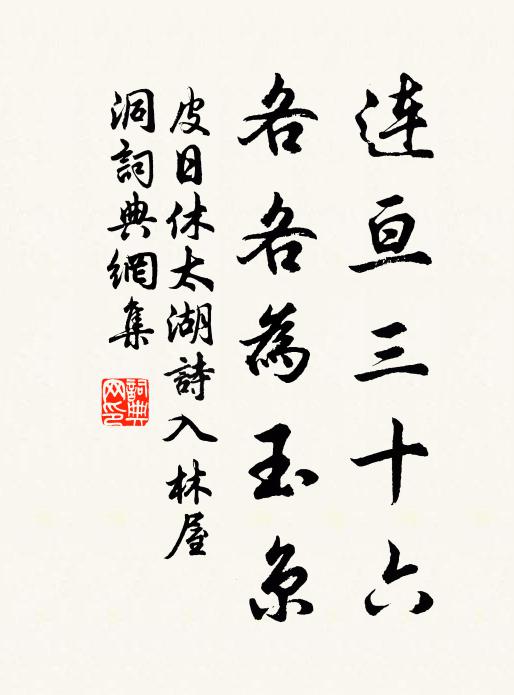 連亘三十六
各各為玉京
皮日休太湖詩入林屋
洞詞典網集
詞典網印